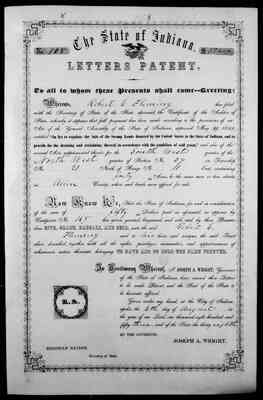 The State of Indiana.
No.
LETTERS PATENT.
To all to whom these presents shall come—Greeting:
Whereas, Robert C Fleming has filed
with the Secretary of State of the State aforesaid the Certificate of the Auditor of
State, whereby it appears that full payment has been made according to the provisions of an
Act of the General Assembly of the State of Indiana, approved May
entitled "An Act to regulate the Sale of the Swamp Lands donated by the United States to the State of Indiana, and to
provide for the draining and reclaiming thereof, in accordance with the condition of said grant," and
for the South West quarter of the
North West quarter of Section No. 27 in Township
No. 21 North of Range No. containing
forty Acres
in County, where said lands were offered for sale.
Now Know Ye, That the State of Indiana, for and in consideration
of the sum of fifty Dollars paid as aforesaid
Certificate No. 185 has given, granted, bargained and sold and by these Presents
does GIVE, GRANT, BARGAIN, AND SELL, unto the said Robert C
Fleming and to his heirs and assigns, the said Tract
above described, together with all the rights, privileges, immunities, and appurtenances of
whatsoever nature thereunto belonging, TO HAVE AND TO HOLD THE SAME FOREVER.
In Testimony Whereof, I, JOSEPH A. WRIGHT, Governor
of the State of Indiana, have caused these Letters
to be made Patent, and the Seal of the State to
be hereunto affixed.
Given under my hand, at the City of Indianapolis,
the day of August in
the year of our Lord, one thousand eight hundred and
fifty three and of the State the
BY THE GOVERNOR:
JOSEPH A. WRIGHT.
NEHEMIAH HAYDEN,
Secretary of State.